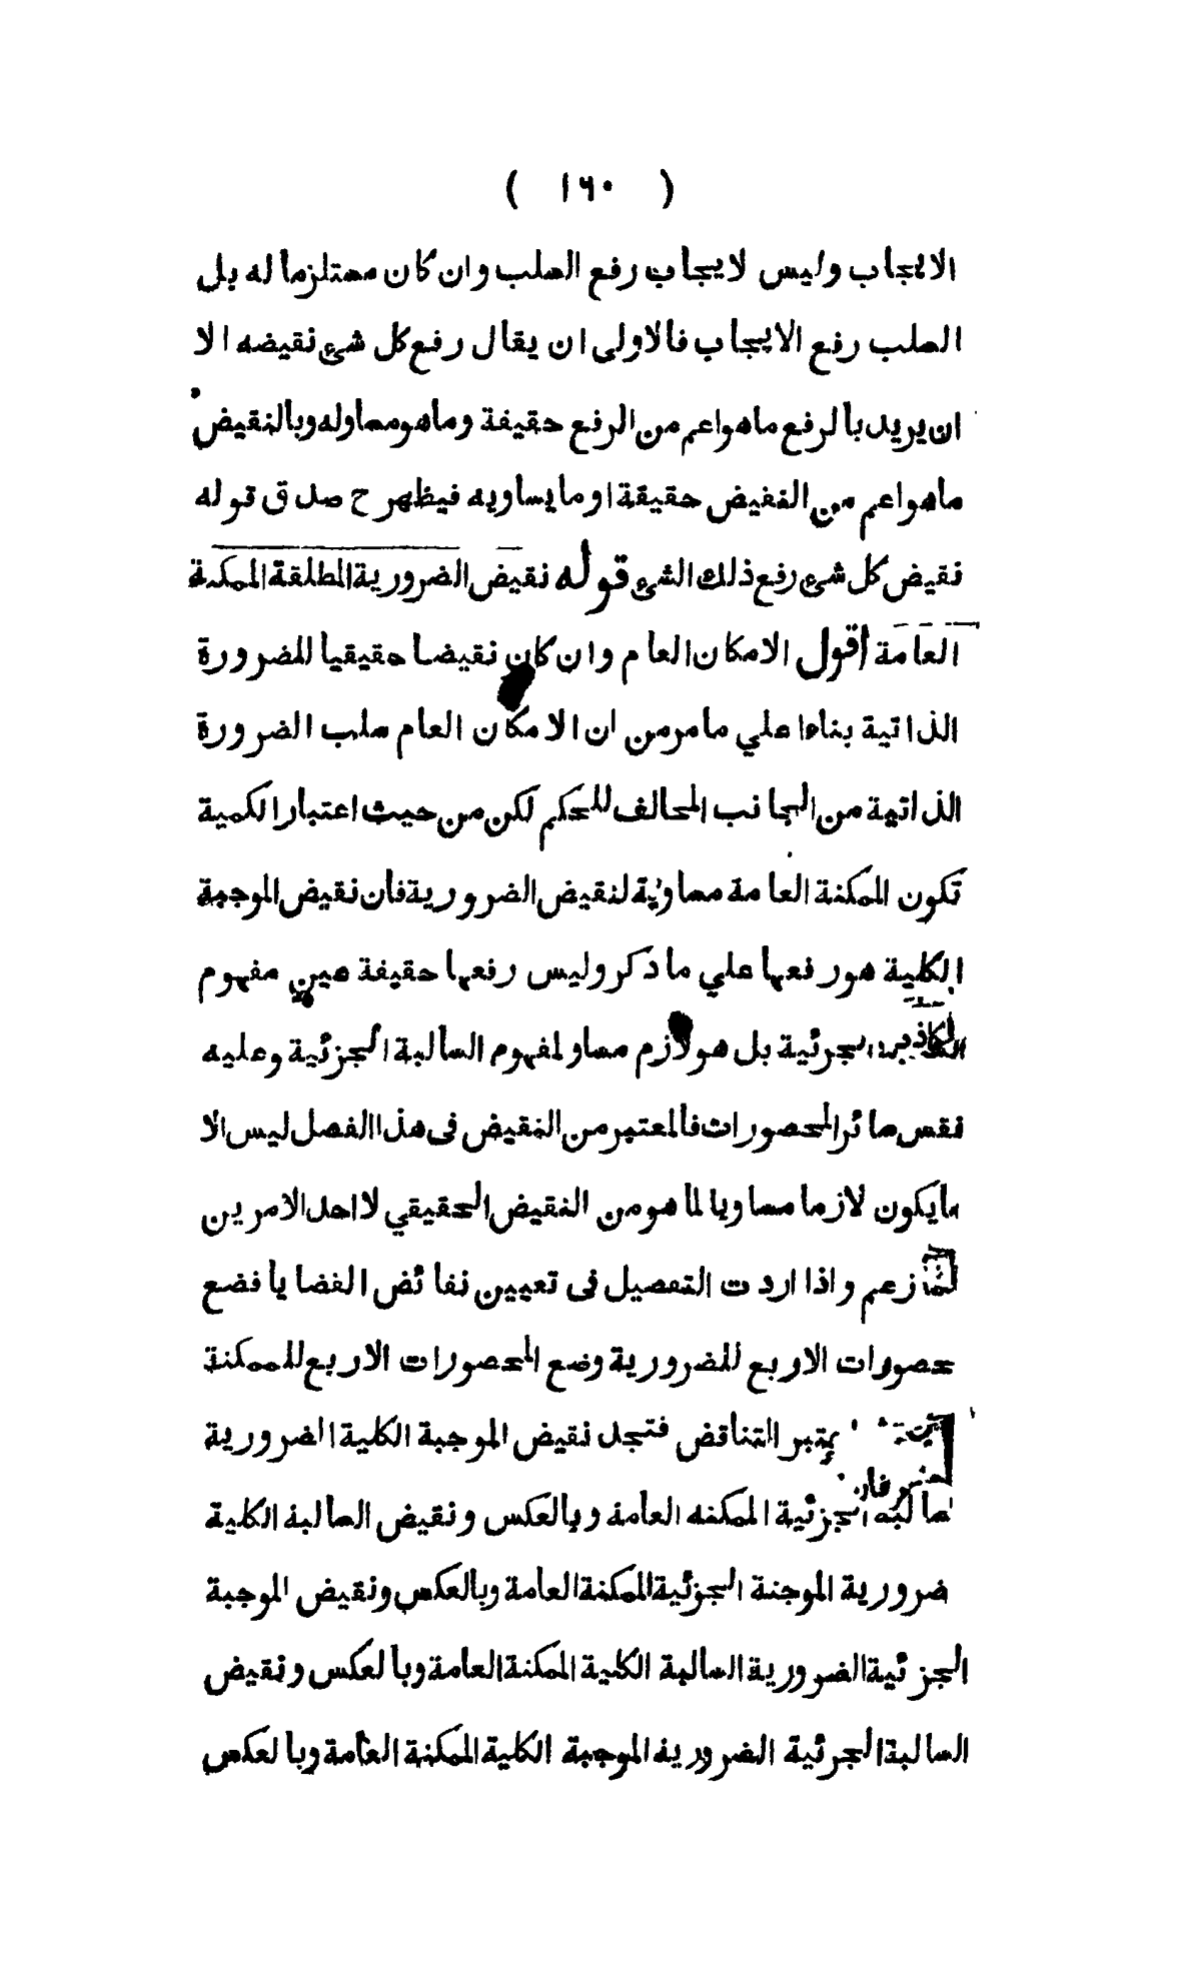 ( ١٦٠ )
الايجاب وليس لايجاب رفع السلب وان كان مستلزما له بل
السلب رفع الايجاب فالاولى ان يقال رفع كل شئ نقيضه الا
ان يريد بالرفع ما هو اعم من الرفع حقيفة وما هو مساوله وبالنقيض
ما هو اعم من النفيض حقيقة او ما يساويه فيظهر ح صدق قوله
نقيض كل شئ رفع ذلك الشئ قوله نقيض الضرورية المطلقة الممكنة
العامة أقول الامكان العام وان كان نقيضا حقيقيا للضرورة
الذاتية بناءا علي ما مر من ان الامكان العام سلب الضرورة
الذاتية من الجانب المخالف للحكم لكن من حيث اعتبار الكمية
تكون الممكنة العامة مساوية لنقيض الضرورية فان نقيض الموجبة
الكلية هو رفعها علي ما ذكر وليس رفعها حقيفة عين مفهوم
الجرئية بل هو لازم مساو لمفهوم السالبة الجزئية وعليه
نقس سائر المحصورات فالمعتبر من النقيض فى هذا الفصل ليس الا
ما يكون لازما مساويا لما هو من النقيض الحقيقي لا احد الامرين
زعم واذا اردت التفصيل فى تعيين نفائض الفضايا فضع
حصورات الاربع للضرورية وضع المحصورات الاربع للممكنة
يعتبر التناقض فتجد نقيض الموجبة الكلية الضرورية
سالبة الجزئية الممكنه العامة وبالعكس ونقيض السالبة الكلية
ضرورية الموجنة الجزئية الممكنة العامة وبالعكس ونقيض الموجبة
الجزئية الضرورية السالبة الكلية الممكنة العامة وبالعكس ونقيض
السالبة الجرئية الضرورية الموجبة الكلية الممكنة العامة وبالعكس